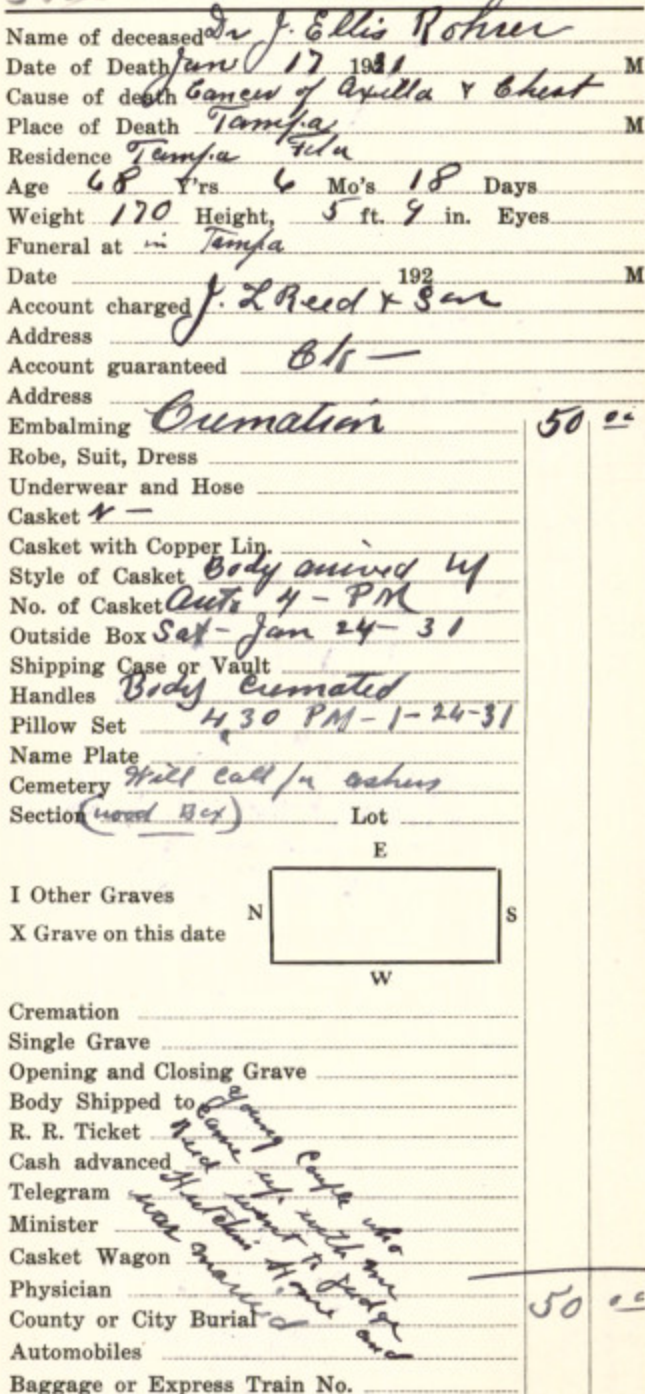 Name of deceased Dr J. Ellis Rohrer
Date of Death Jan 17 1931 M
Cause of death Cancer of Axilla & Chest
Place of Death Tampa M
Residence Tampa Fla
Age 68 Y'rs 6 Mo's 18 Days
Weight 170 Height, 5 ft. 9 in. Eyes
Funeral at in Tampa
Date 192 M
Account charged J. L Reed & Son
Address
Account guaranteed
Address
Embalming Cremation 50 00
Robe, Suit, Dress
Underwear and Hose
Casket N —
Casket with Copper Lin.
Style of Casket Body arrived by
No. of Casket Auto 4 - PM
Outside Box Sat - Jan 24 - 31
Shipping Case or Vault
Handles Body Cremated
Pillow Set 4,30 PM - 1-24-31
Name Plate
Cemetery Will call for ashes
Section (wood Box) Lot
E
I Other Graves
N S
X Grave on this date
W
Cremation
Single Grave
Opening and Closing Grave
Body Shipped to
R. R. Ticket
Cash advanced
Telegram
Minister
Casket Wagon
Physician
County or City Burial 50 00
Automobiles
Baggage or Express Train No.
young couple who
came up with mr
Reed went to Judge
Hutchins Home and
was married